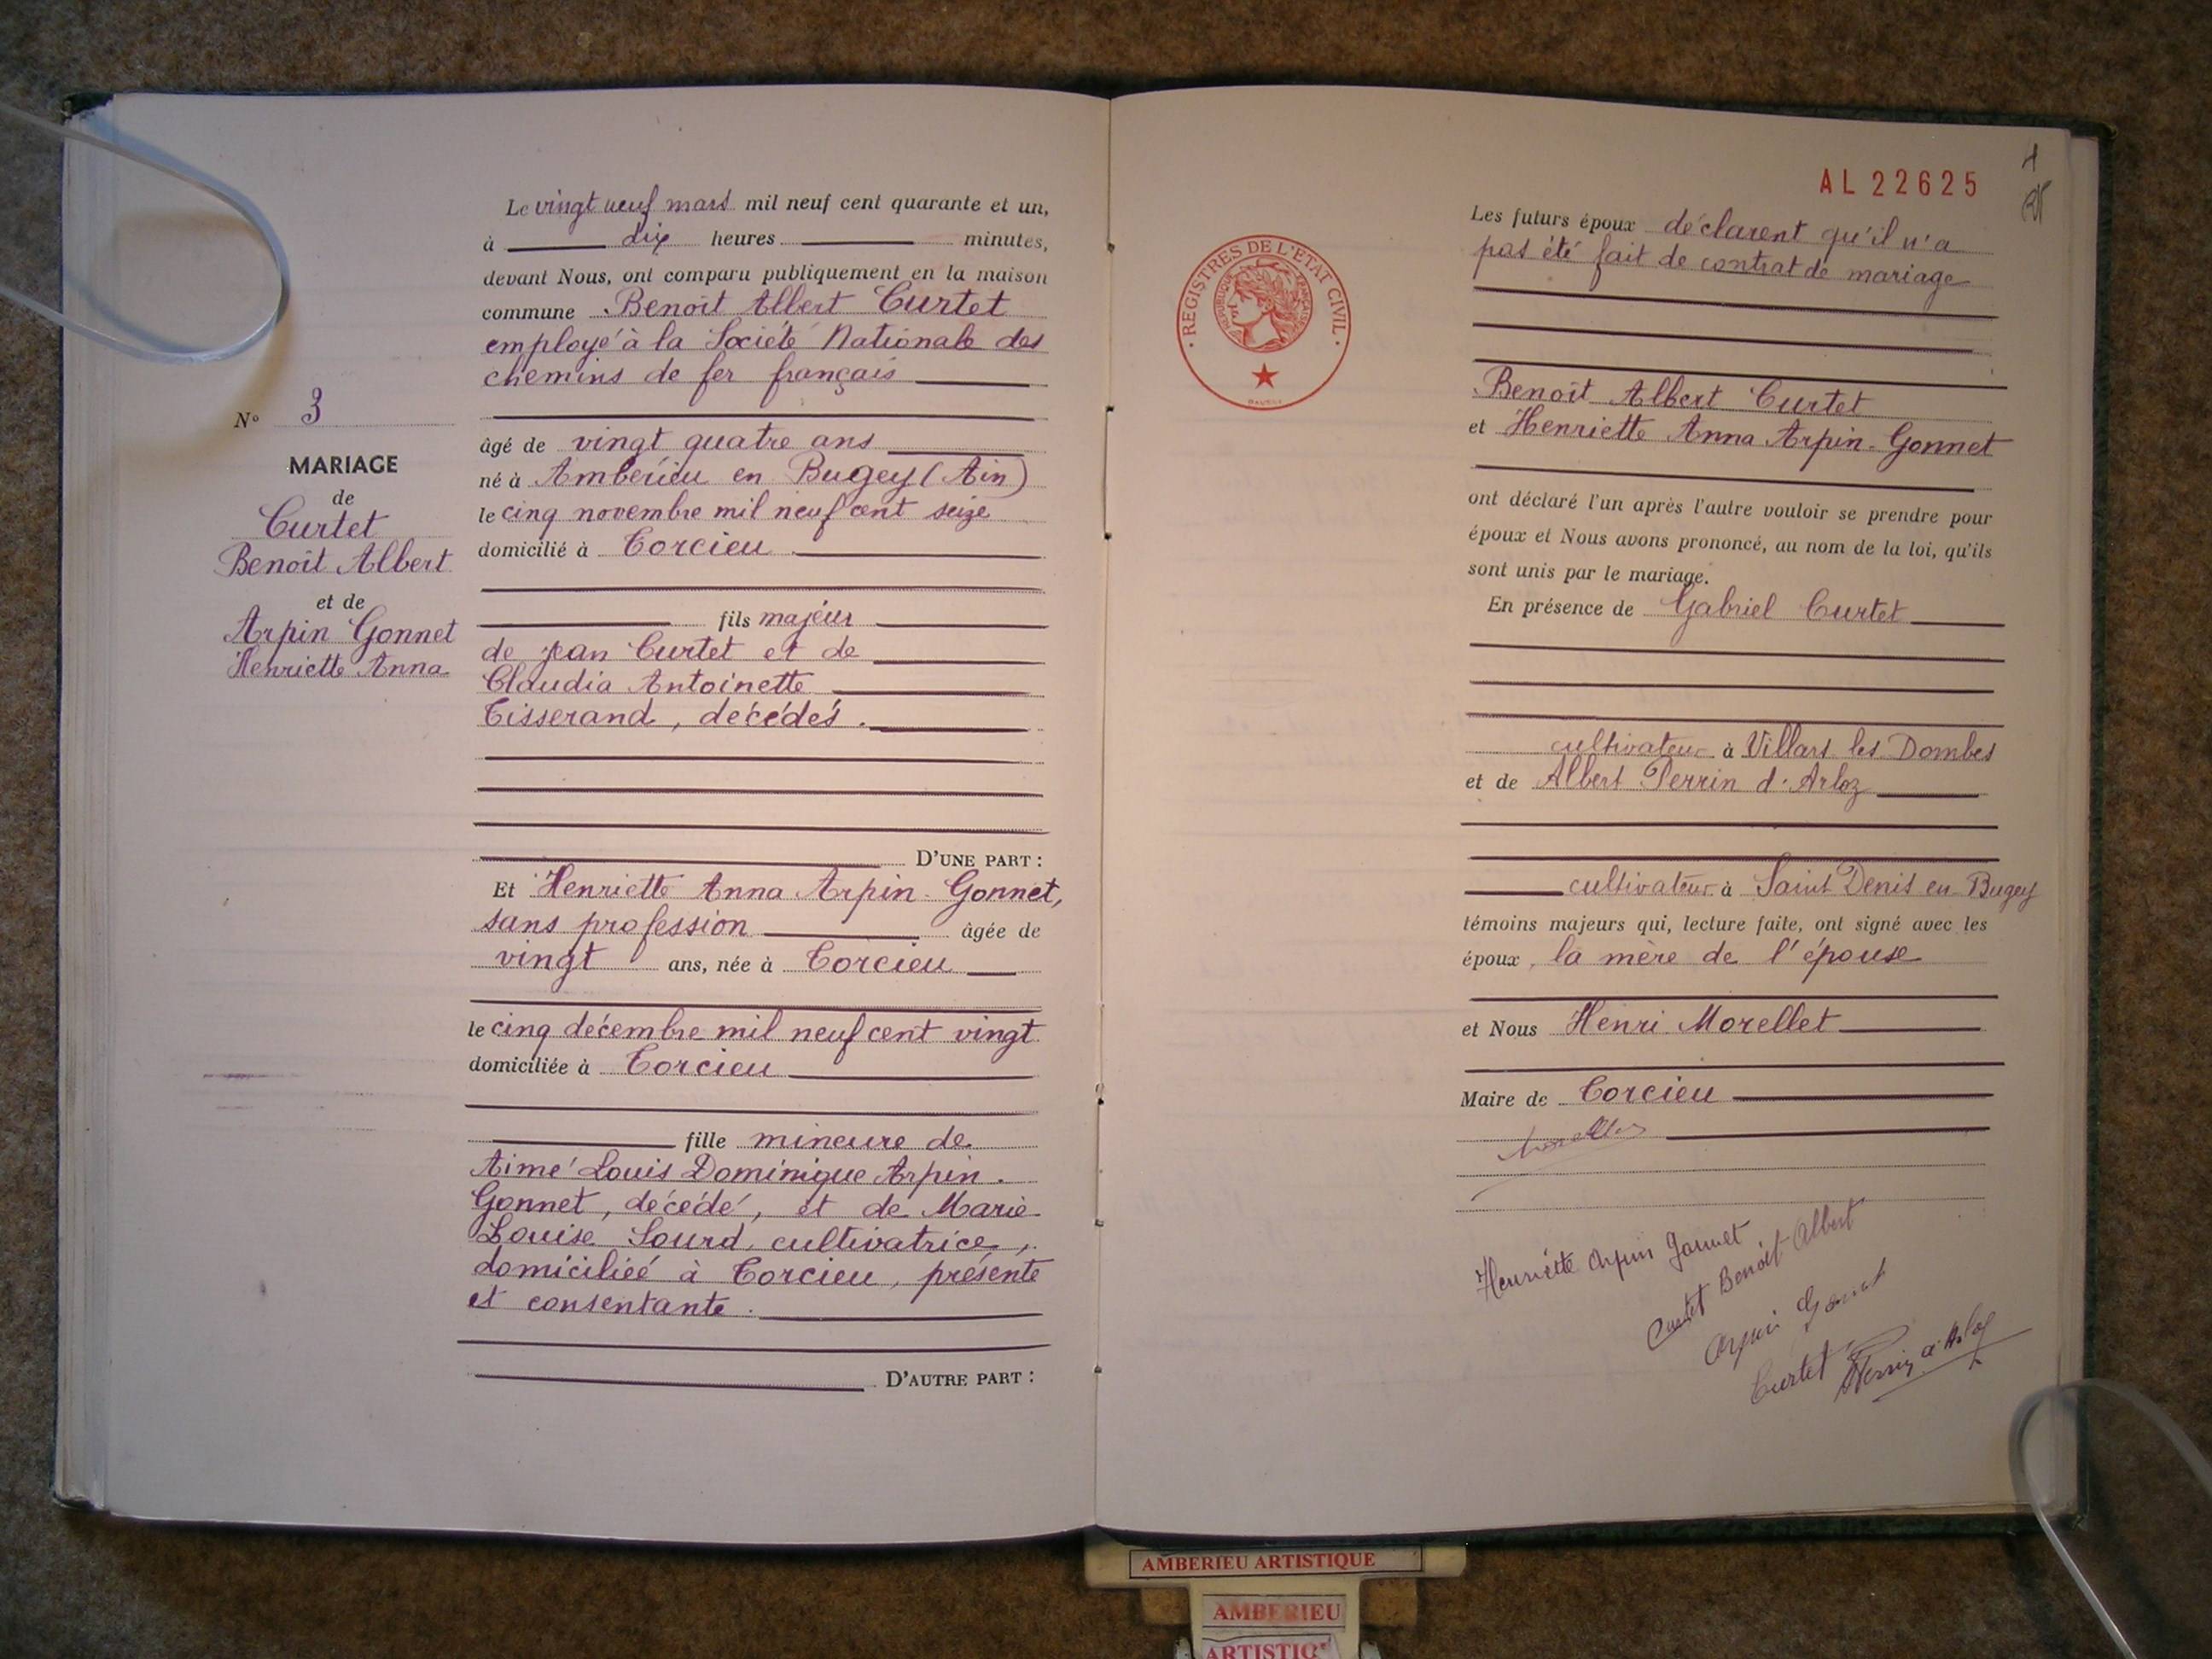 Le vingt neuf mars mil neuf cent quarante et un,
à dix heures minutes,
devant Nous, ont comparu publiquement en la maison
commune Benoît Albert Curtet
employé à la Société Nationale des
chemins de fer français
âgé de vingt quatre ans
né à Ambérieu en Bugey (Ain)
le cinq novembre mil neuf cent seize
domicilié à Torcieu
fils majeur
de Jean Curtet et de
Claudia Antoinette
Tisserand, décédés.
D'UNE PART :
Et Henriette Anna Arpin-Gonnet,
sans profession âgée de
vingt ans, née à Torcieu
le cinq décembre mil neuf cent vingt
domiciliée à Torcieu
fille mineure de
Aimé Louis Dominique Arpin-
Gonnet, décédé, et de Marie
Louise Sourd, cultivatrice,
domiciliée à Torcieu, présente
et consentante.
D'AUTRE PART :
N° 3
MARIAGE
de
Curtet
Benoît Albert
et de
Arpin Gonnet
Henriette Anna
REGISTRES DE L'ÉTAT CIVIL
RÉPUBLIQUE FRANÇAISE
AL 22625
Les futurs époux déclarent qu'il n'a
pas été fait de contrat de mariage
Benoît Albert Curtet
et Henriette Anna Arpin-Gonnet
ont déclaré l'un après l'autre vouloir se prendre pour
époux et Nous avons prononcé, au nom de la loi, qu'ils
sont unis par le mariage.
En présence de Gabriel Curtet
cultivateur à Villars les Dombes
et de Albert Perrin d'Arloz
cultivateur à Saint Denis en Bugey
témoins majeurs qui, lecture faite, ont signé avec les
époux, la mère de l'épouse
et Nous Henri Morellet
Maire de Torcieu
Henriette Arpin Gonnet
Curtet Benoît Albert
Arpin Gonnet
Curtet
Perrin d'Arloz
AMBERIEU ARTISTIQUE
AMBERIEU